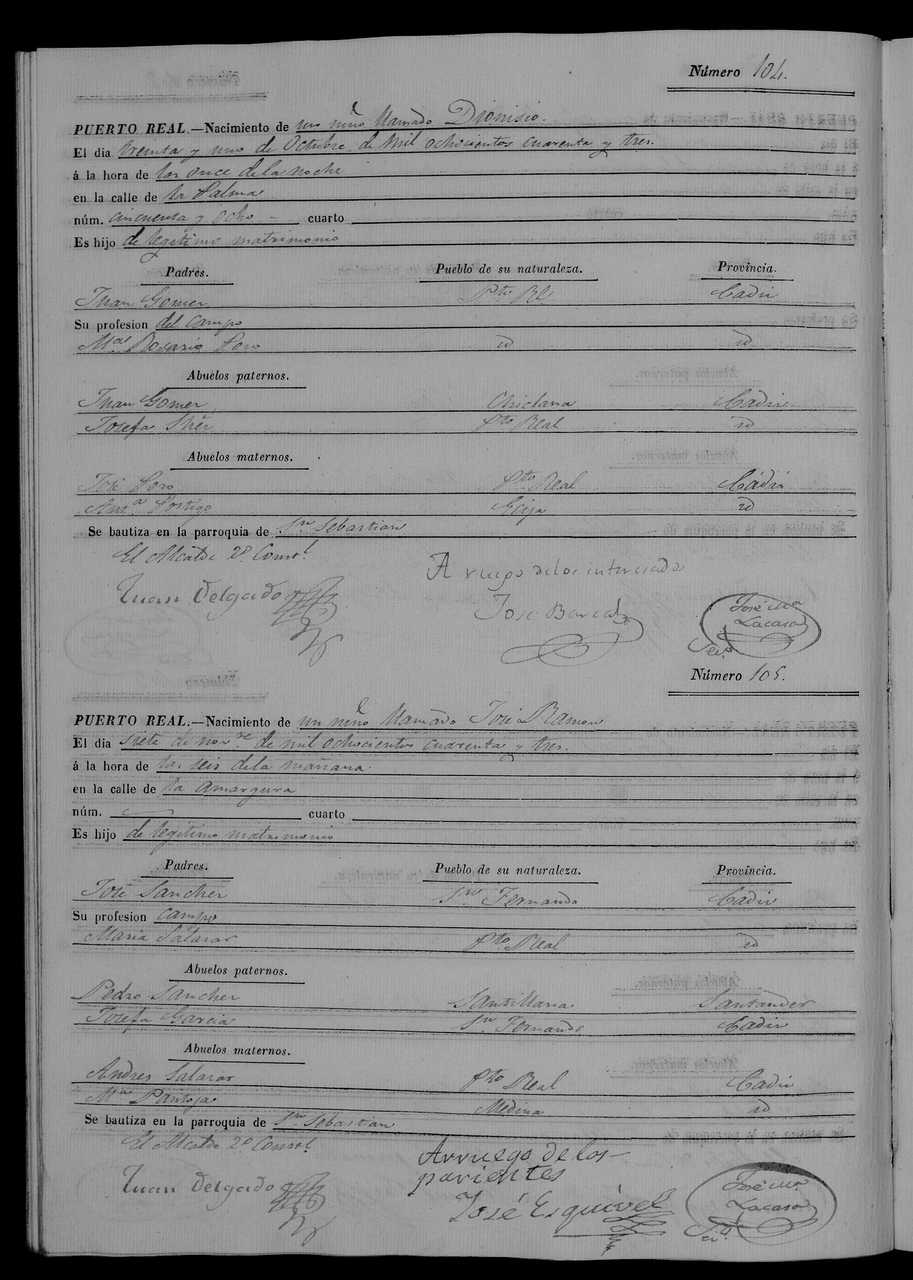 Número 104.
PUERTO REAL.—Nacimiento de un niño llamado Dionisio.
El dia treinta y uno de Octubre de mil ochocientos cuarenta y tres.
á la hora de las once de la noche
en la calle de la Palma
núm. cincuenta y ocho - cuarto
Es hijo de legitimo matrimonio
Padres. Pueblo de su naturaleza. Provincia.
Juan Gomez Pto Rl Cadiz
Su profesion del campo
Ma Rosario Soro id id
Abuelos paternos.
Juan Gomez Chiclana Cádiz
Josefa Pto Real id
Abuelos maternos.
José Soro Pto Real Cádiz
Anta id
Se bautiza en la parroquia de Sn Sebastian
El Alcalde 2º Consl.
A ruego de los interesados
Juan Delgado
José
José Ma
Lacasa
Seio
Número 105.
PUERTO REAL.—Nacimiento de un niño llamado José Ramon
El dia siete de novre de mil ochocientos cuarenta y tres.
á la hora de las seis de la mañana
en la calle de la Amargura
núm. cuarto
Es hijo de legitimo matrimonio
Padres. Pueblo de su naturaleza. Provincia.
José Sanchez Sn Fernando Cadiz
Su profesion campo
Maria Salazar Pto Real id
Abuelos paternos.
Pedro Sanchez Santillana Santander
Josefa Garcia Sn Fernando Cadiz
Abuelos maternos.
Andres Salazar Pto Real Cadiz
Ma Pantoja Medina id
Se bautiza en la parroquia de Sn Sebastian
El Alcalde 2º Consl.
Arruego de los
parientes
Juan Delgado
José Esquivel
José Ma
Lacasa
Seio